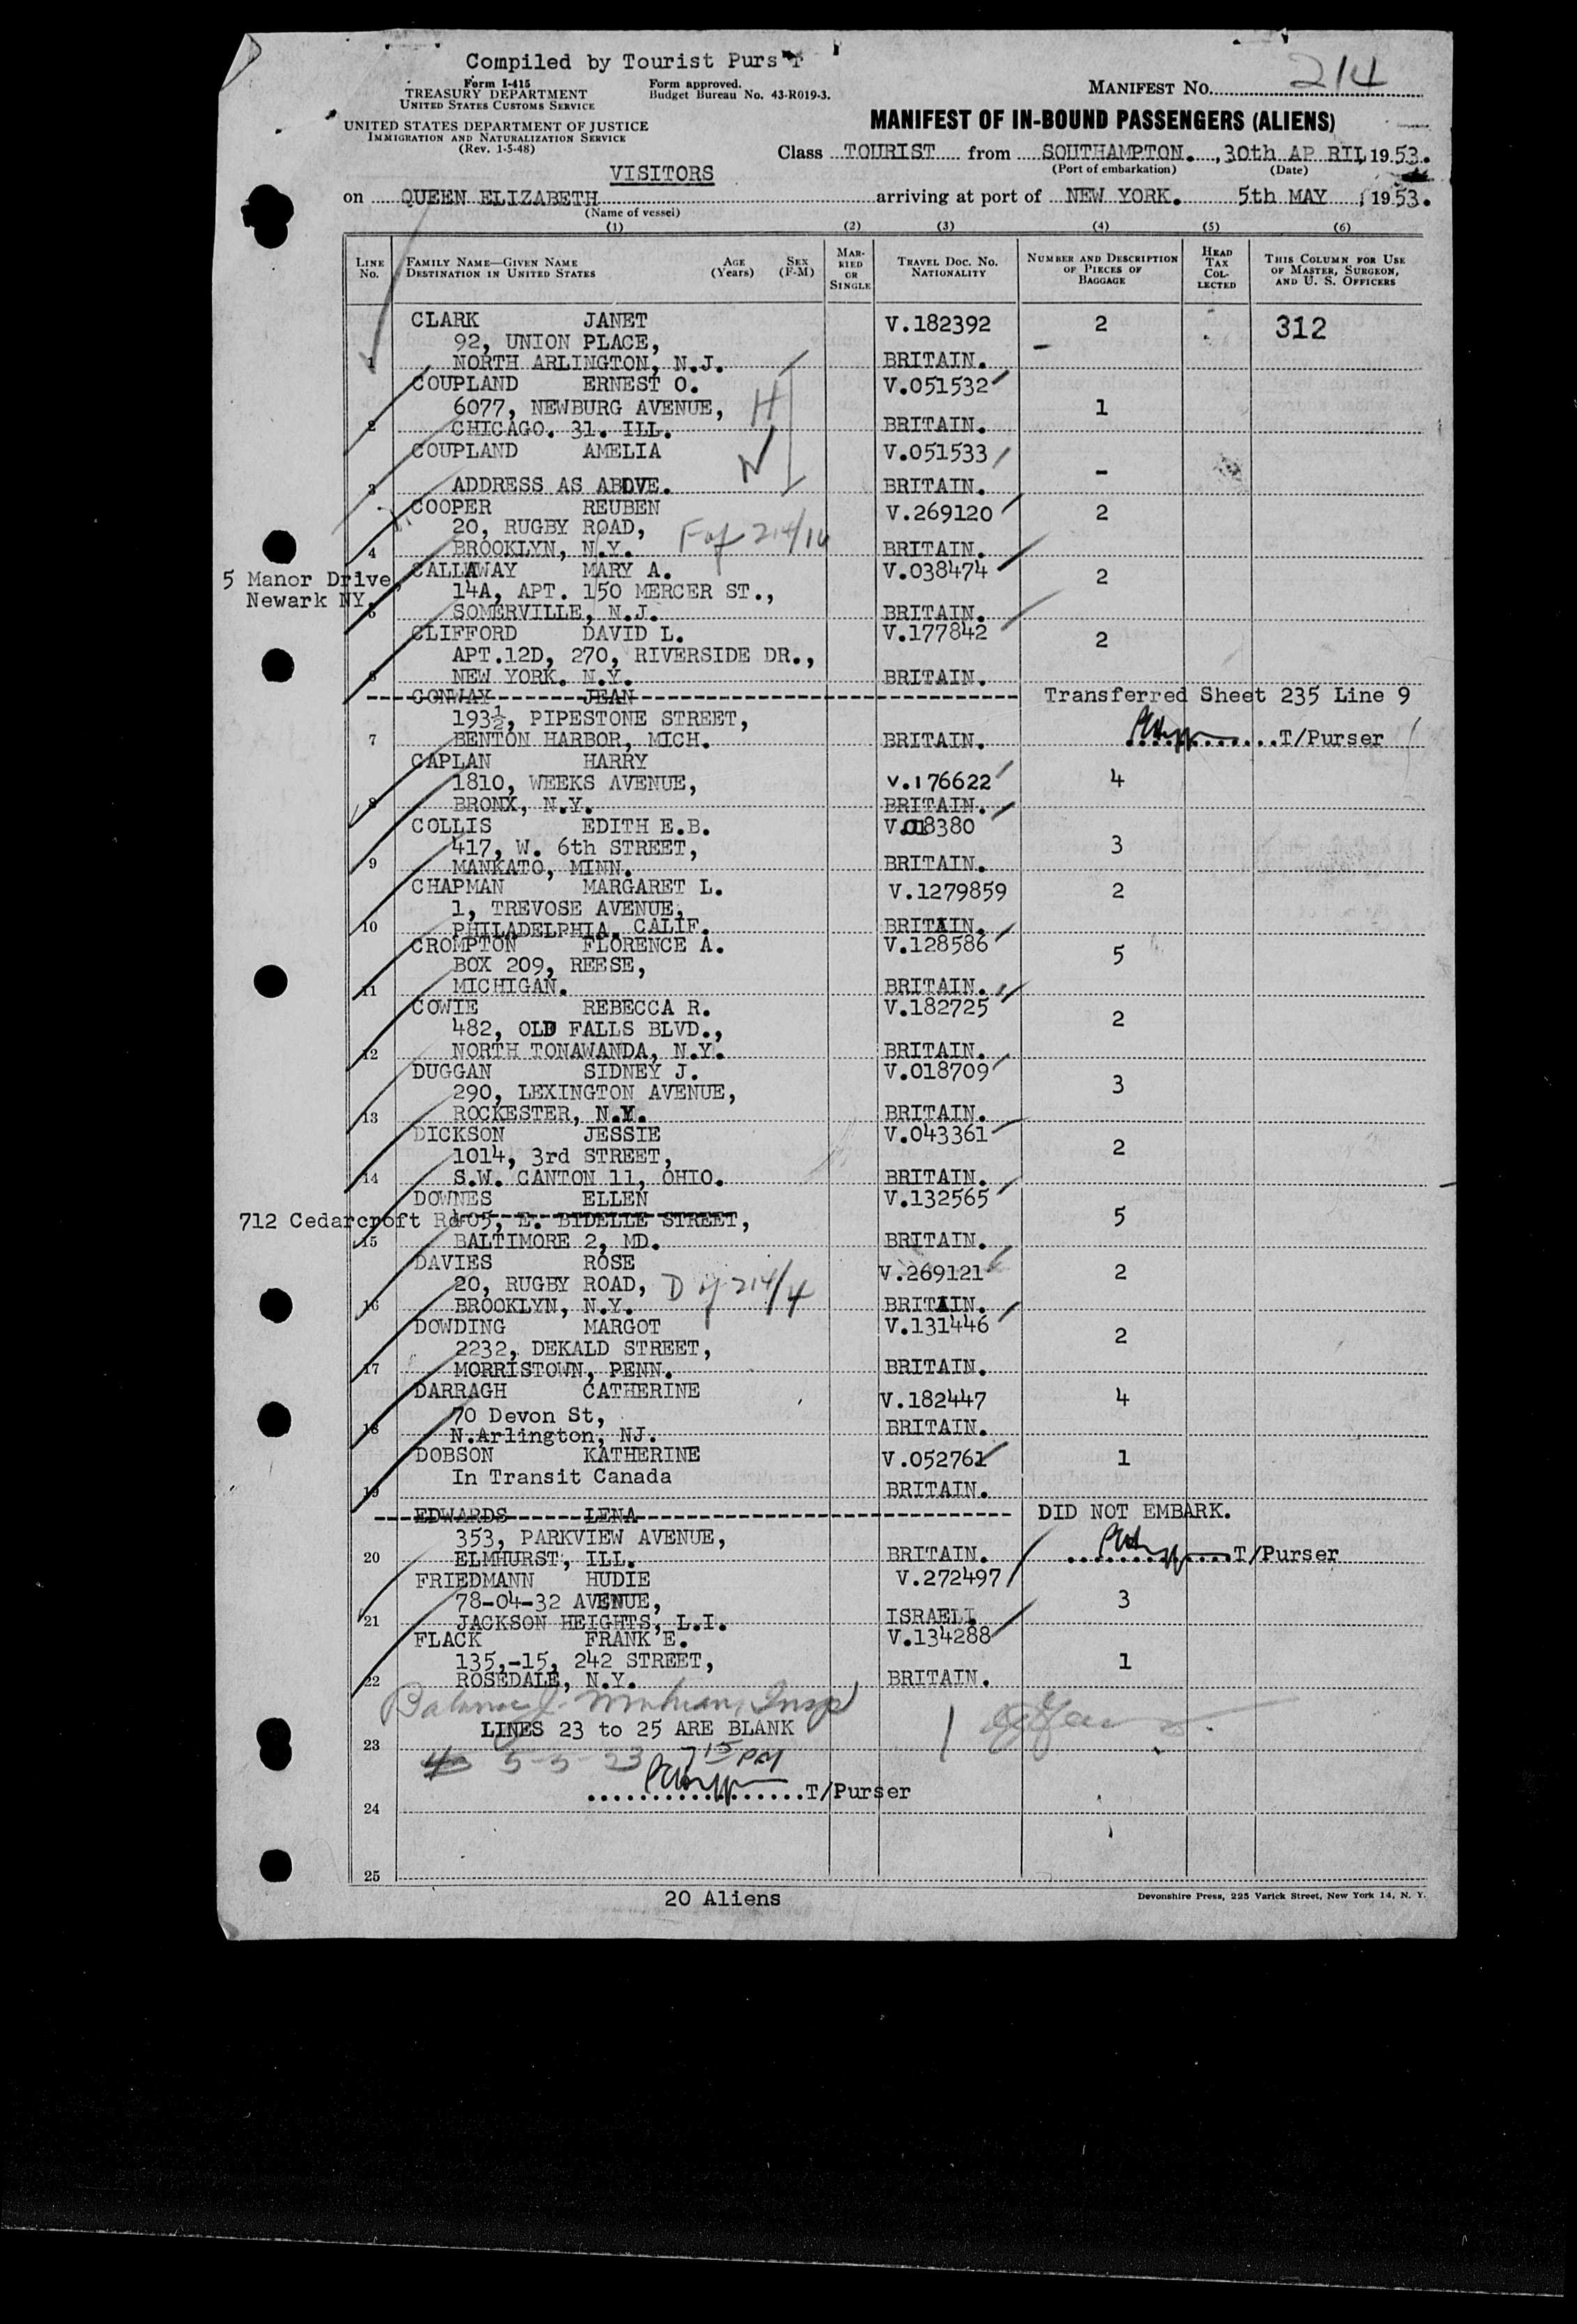 Compiled by Tourist Purs'r
Form I-415
TREASURY DEPARTMENT
UNITED STATES CUSTOMS SERVICE
Form approved.
Budget Bureau No. 43-R019-3.
MANIFEST NO. 214
UNITED STATES DEPARTMENT OF JUSTICE
IMMIGRATION AND NATURALIZATION SERVICE
(Rev. 1-5-48)
MANIFEST OF IN-BOUND PASSENGERS (ALIENS)
Class TOURIST from SOUTHAMPTON., 30th AP RIL, 1953.
(Port of embarkation) (Date)
VISITORS
on QUEEN ELIZABETH arriving at port of NEW YORK. 5th MAY, 1953.
(Name of vessel)
(1) (2) (3) (4) (5) (6)
LINE NO. FAMILY NAME—GIVEN NAME DESTINATION IN UNITED STATES AGE (Years) SEX (F-M) MARRIED OR SINGLE TRAVEL DOC. NO. NATIONALITY NUMBER AND DESCRIPTION OF PIECES OF BAGGAGE HEAD TAX COLLECTED THIS COLUMN FOR USE OF MASTER, SURGEON, AND U. S. OFFICERS
CLARK JANET V.182392 2 312
92, UNION PLACE,
1 NORTH ARLINGTON, N.J. BRITAIN.
COUPLAND ERNEST O. V.051532
6077, NEWBURG AVENUE, H 1
2 CHICAGO. 31. ILL. BRITAIN.
COUPLAND AMELIA V.051533
W -
3 ADDRESS AS ABOVE. BRITAIN.
COOPER REUBEN V.269120 2
20, RUGBY ROAD, F of 214/16
4 BROOKLYN, N.Y. BRITAIN.
5 Manor Drive, CALLAWAY MARY A. V.038474 2
Newark NY. 14A, APT. 150 MERCER ST.,
5 SOMERVILLE, N.J. BRITAIN.
CLIFFORD DAVID L. V.177842 2
APT.12D, 270, RIVERSIDE DR.,
6 NEW YORK. N.Y. BRITAIN.
CONWAY JEAN Transferred Sheet 235 Line 9
193½, PIPESTONE STREET,
7 BENTON HARBOR, MICH. BRITAIN. T/Purser
CAPLAN HARRY
1810, WEEKS AVENUE, V.176622 4
8 BRONX, N.Y. BRITAIN.
COLLIS EDITH E.B. V.018380
417, W. 6th STREET, 3
9 MANKATO, MINN. BRITAIN.
CHAPMAN MARGARET L. V.1279859 2
1, TREVOSE AVENUE,
10 PHILADELPHIA, CALIF. BRITAIN.
CROMPTON FLORENCE A. V.128586 5
BOX 209, REESE,
11 MICHIGAN. BRITAIN.
COWIE REBECCA R. V.182725 2
482, OLD FALLS BLVD.,
12 NORTH TONAWANDA, N.Y. BRITAIN.
DUGGAN SIDNEY J. V.018709 3
290, LEXINGTON AVENUE,
13 ROCKESTER, N.Y. BRITAIN.
DICKSON JESSIE V.043361 2
1014, 3rd STREET,
14 S.W. CANTON 11, OHIO. BRITAIN.
DOWNES ELLEN V.132565 5
712 Cedarcroft Rd 405, E. BIDELLE STREET,
15 BALTIMORE 2, MD. BRITAIN.
DAVIES ROSE V.269121 2
20, RUGBY ROAD, D of 214/4
16 BROOKLYN, N.Y. BRITAIN.
DOWDING MARGOT V.131446 2
2232, DEKALD STREET,
17 MORRISTOWN, PENN. BRITAIN.
DARRAGH CATHERINE V.182447 4
70 Devon St,
18 N.Arlington, NJ. BRITAIN.
DOBSON KATHERINE V.052761 1
In Transit Canada
19 BRITAIN.
EDWARDS LENA DID NOT EMBARK.
353, PARKVIEW AVENUE,
20 ELMHURST, ILL. BRITAIN. T/Purser
FRIEDMANN HUDIE V.272497
78-04-32 AVENUE, 3
21 JACKSON HEIGHTS, L.I. ISRAELI
FLACK FRANK E. V.134288
135,-15, 242 STREET, 1
22 ROSEDALE, N.Y. BRITAIN.
Insp
LINES 23 to 25 ARE BLANK
23
7 15 PM
T/Purser
24
25
20 Aliens
Devonshire Press, 225 Varick Street, New York 14, N. Y.